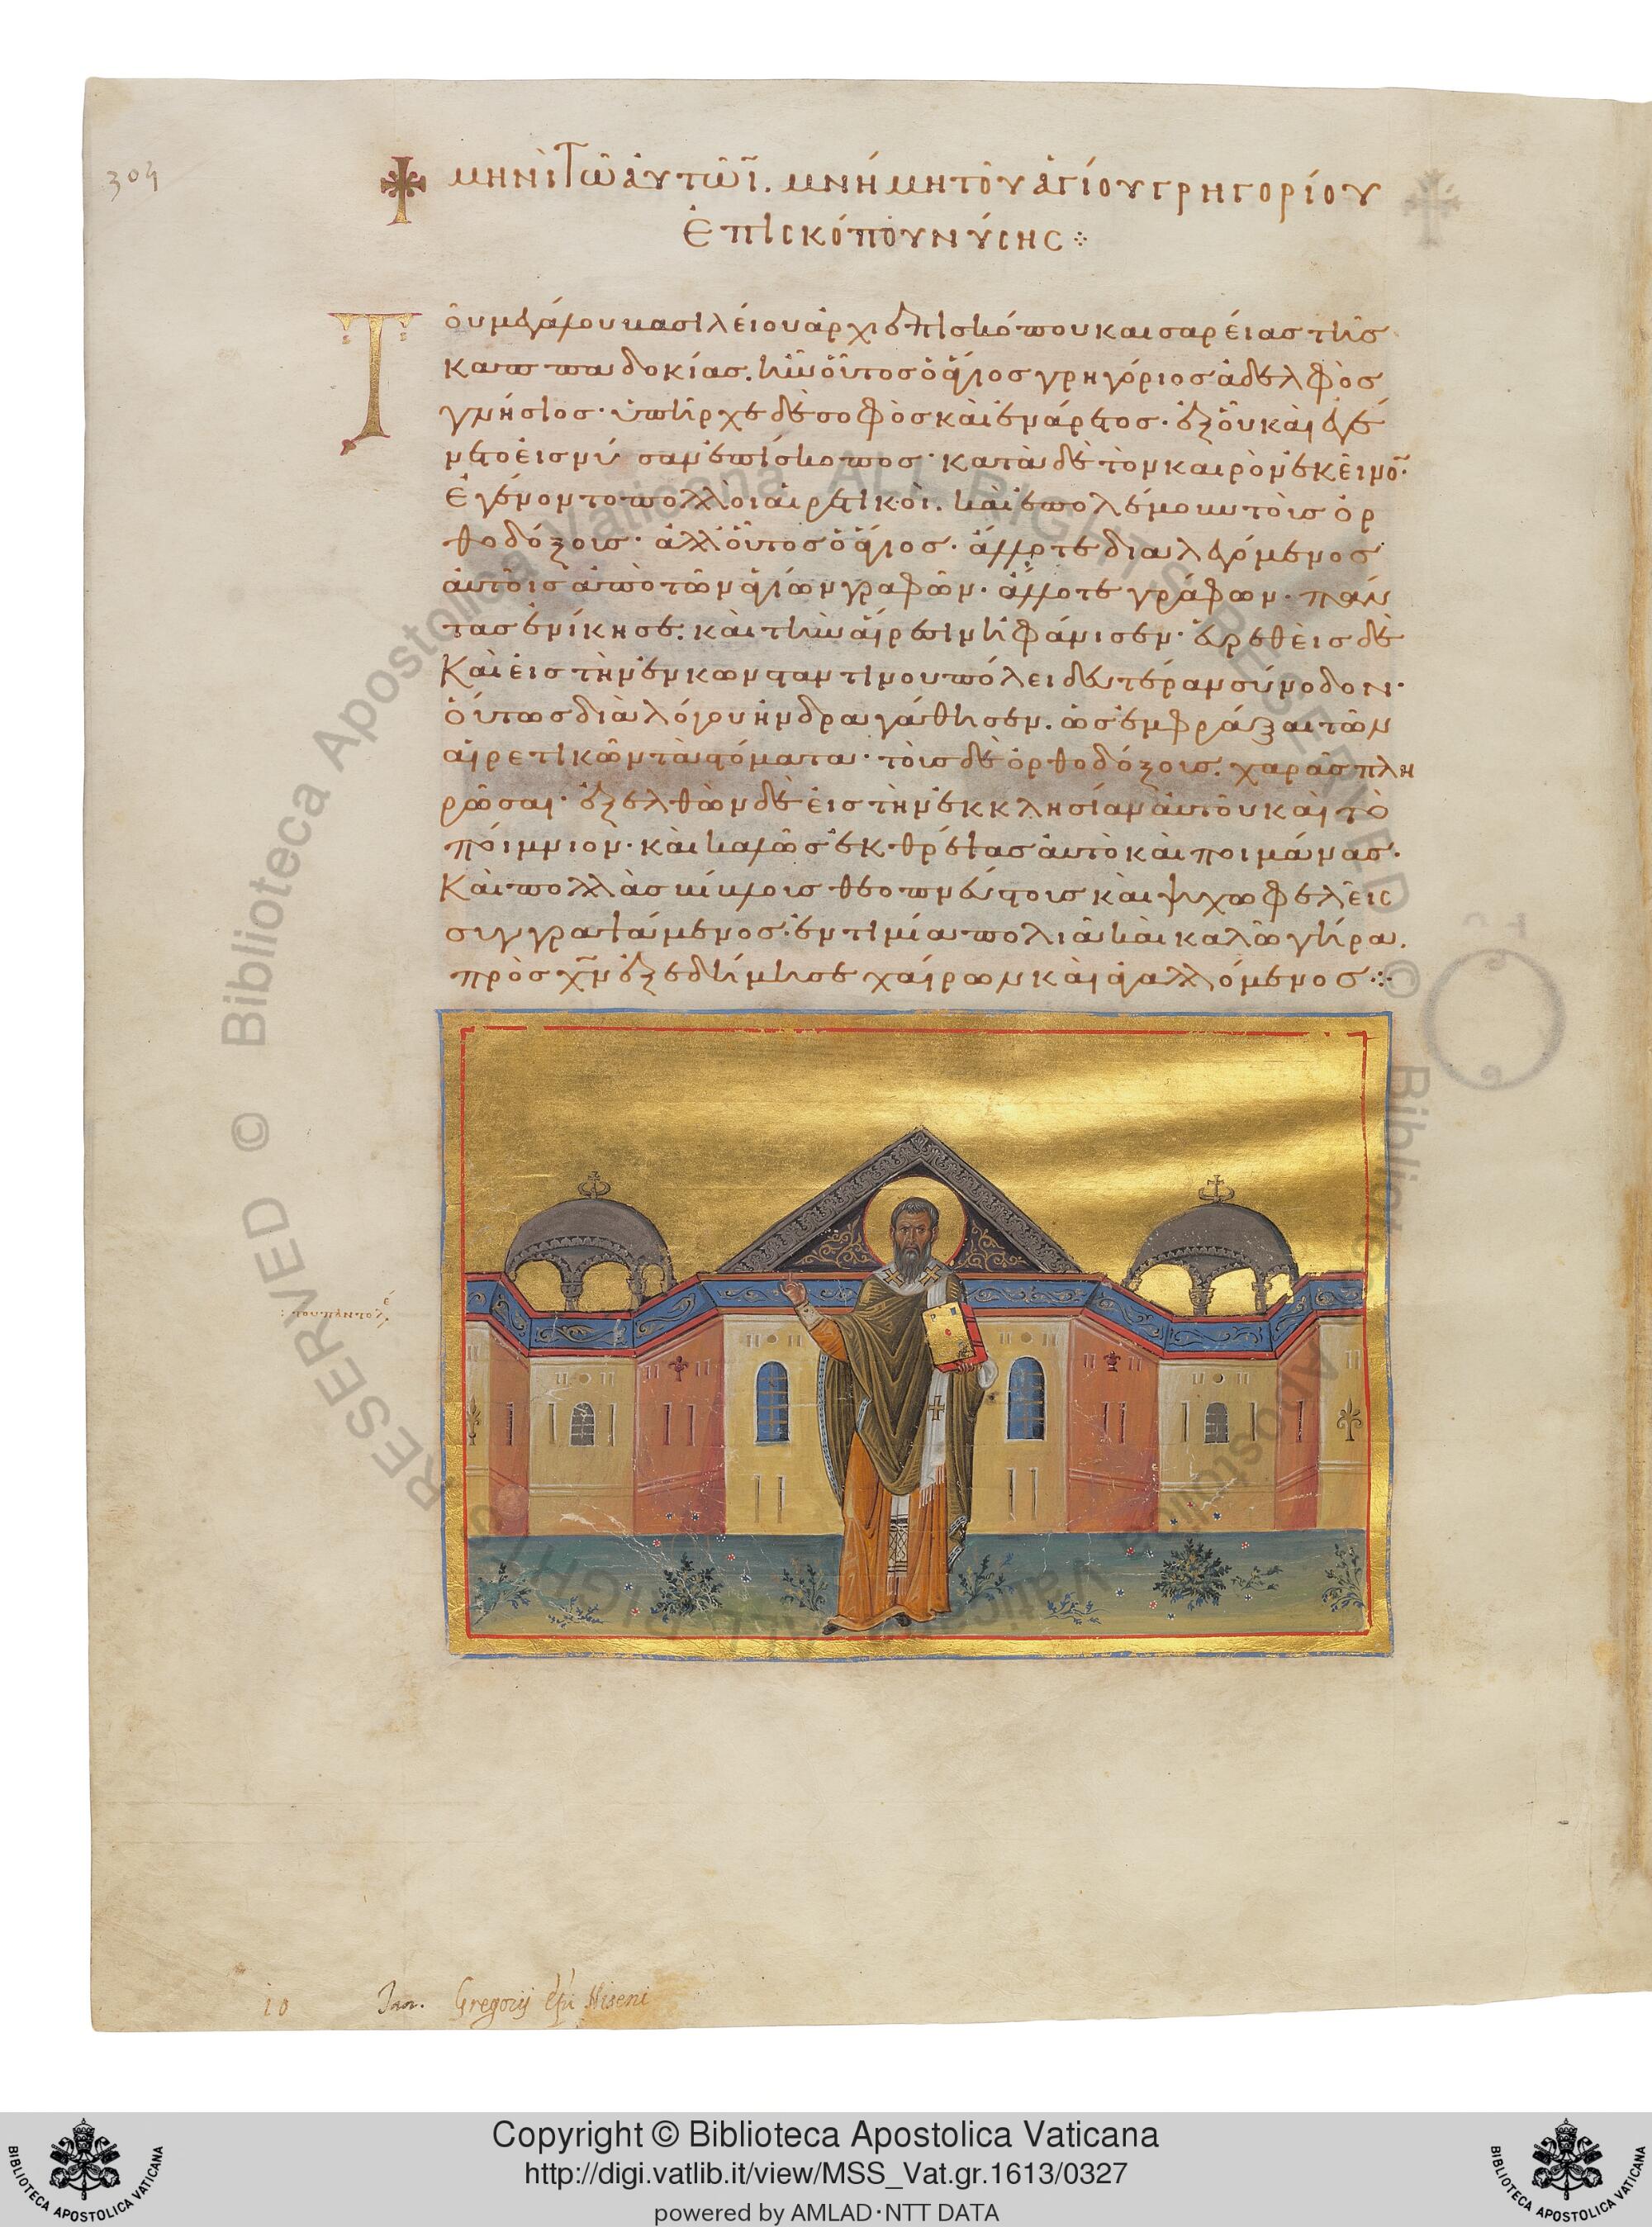 304
μηνὶ τῶ αὐτῶι. μνήμη τοῦ ἁγίου γρηγορίου
ἐπισκόπου νύσης ⁘
Τοῦ μεγάλου βασιλείου ἀρχιεπισκόπου καισαρείας τῆς
καππαδοκίας. ἦν οὗτος ὁ ἅγιος γρηγόριος ἀδελφὸς
γνήσιος· ὑπῆρχε δὲ σοφὸς καὶ ἐνάρετος· ἐξ οὗ καὶ ἐγέ
νετο εἰς νύσαν ἐπίσκοπος· κατὰ δὲ τὸν καιρὸν ἐκεῖνο͂·
ἐγένοντο πολλοὶ αἱρετικοὶ. καὶ ἐπολέμουν τοὺς ὀρ
θοδόξους· ἀλλ οὗτος ὁ ἅγιος· ἄλλοτε διαλεγόμενος
αὐτοῖς ἀπὸ τῶν ἁγίων γραφῶν· ἄλλοτε γράφων· πάν
τας ἐνίκησε. καὶ τὴν αἵρεσιν ἠφάνισεν· εὑρεθεὶς δὲ
καὶ εἰς τὴν ἐν κωνσταντινουπόλει δευτέραν σύνοδον·
οὕτως διὰ λόγου ἠνδραγάθησεν. ὡς ἐμφράξαι τῶν
αἱρετικῶν τὰ στόματα· τοὺς δὲ ὀρθοδόξους. χαρᾶς πλη
ρῶσαι· ἐξελθὼν δὲ εἰς τὴν ἐκκλησίαν αὐτοῦ καὶ τὸ
ποίμνιον· καὶ καλῶς ἐκθρέψας αὐτὸ καὶ ποιμάνας·
καὶ πολλὰς βίβλους θεοπνεύστους καὶ ψυχωφελεῖς
συγγραψάμενος· ἐν τιμία πολιᾶ καὶ καλῶ γήρα.
πρὸς χ̅ν̅ ἐξεδήμησε χαίρων καὶ ἀγαλλόμενος ⁘
10 Jan. Gregorij epi Niseni
© Biblioteca Apostolica Vaticana ALL RIGHTS RESERVED © Biblioteca Apostolica Vaticana ALL RIGHTS RESERVED
Copyright © Biblioteca Apostolica Vaticana
http://digi.vatlib.it/view/MSS_Vat.gr.1613/0327
powered by AMLAD·NTT DATA
BIBLIOTECA APOSTOLICA VATICANA
BIBLIOTECA APOSTOLICA VATICANA